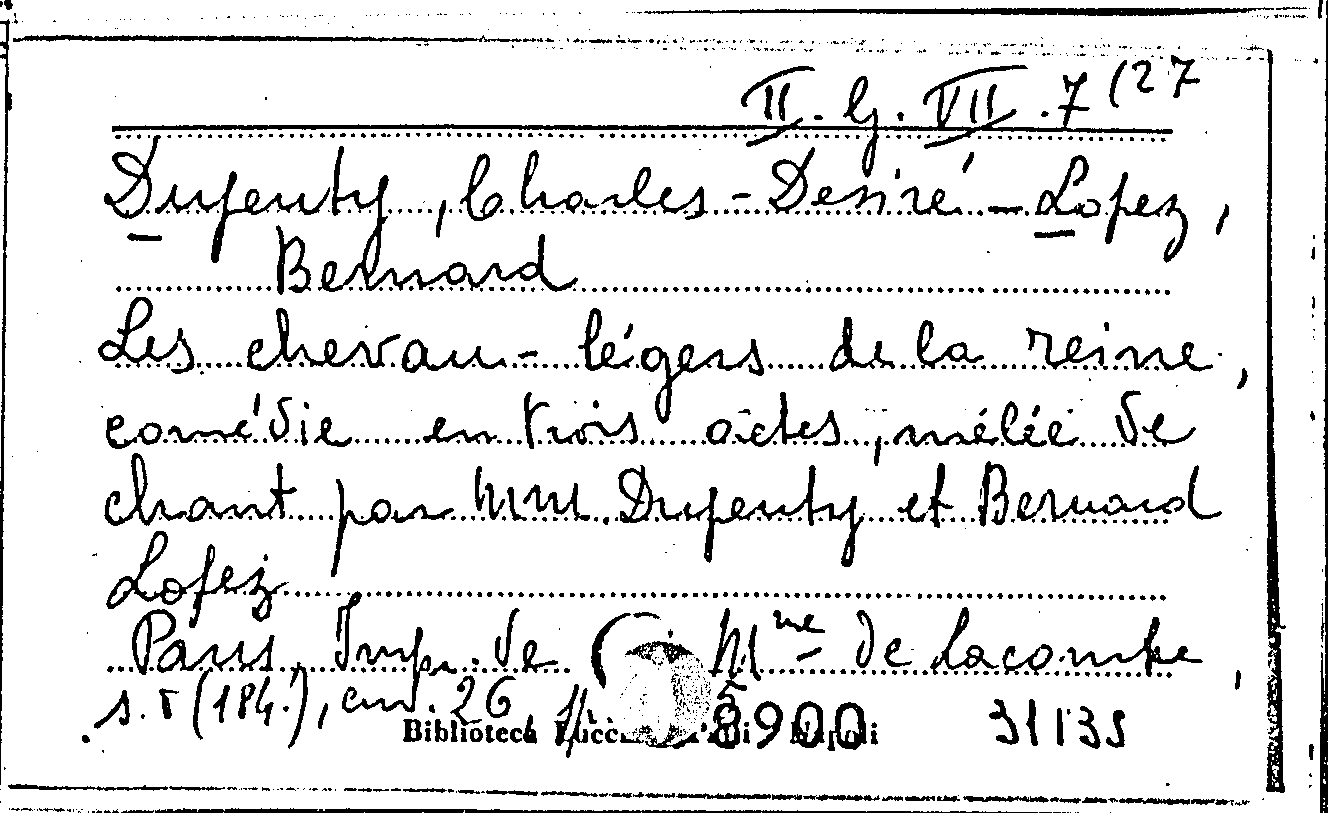 II. G. VII. 7 (27
Dupeuty, Charles-Desiré - Lopez,
Bernard
Les chevau-légers de la reine,
comédie en trois actes, mêlée de
chant par MM. Dupeuty et Bernard
Lopez
Paris, Imp. de Mme de Lacombe,
s. d (184.), cm. 26
Biblioteca Lucchesi Palli Napoli
8900 31135